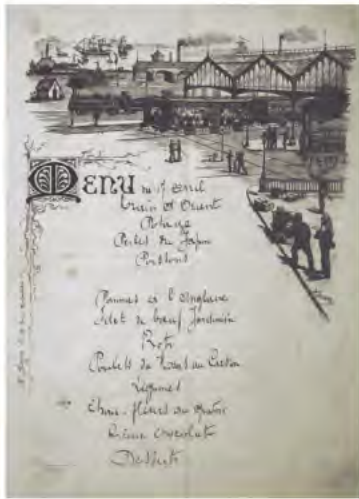 MENU du 17 Avril
Train d'Orient
Potage
Perles du Japon
Poissons
Pommes à l'Anglaise
Filet de bœuf Jardinière
Roti
Poulets du Mans au Cresson
Légumes
Choux-fleurs au gratin
Crème chocolat
Desserts